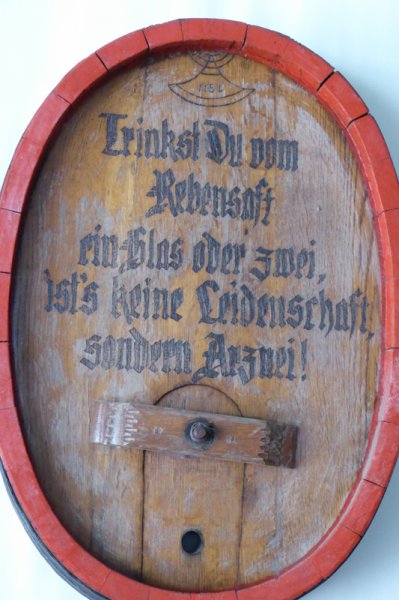 Trinkst Du vom
Rebensaft
ein Glas oder zwei,
ist's keine Leidenschaft,
sondern Arznei!